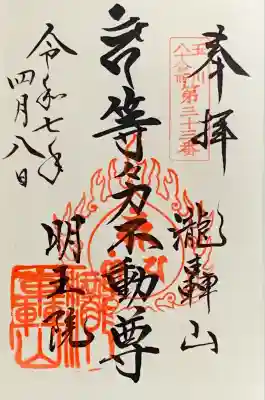 奉拝
玉川
第三十三番
瀧轟山
等々力不動尊
明王院
令和七年
四月八日